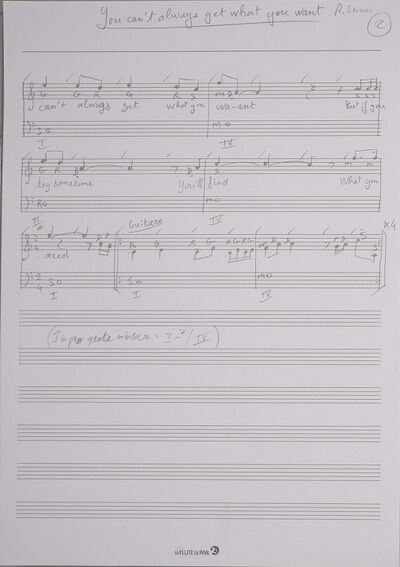 You can't always get what you want R. Stones 2
G G R G R S m D
can't always get what you wa-ant But if you
So mo
I IV
G R D
try sometime You'll find What you
Ro mo
II IV
Guitare X4
2 4 R G R G RGRG
need
2 4 So So mo
I I IV
(Impro penta mineure = I-7/IV)
LA FLUTE DE PAN